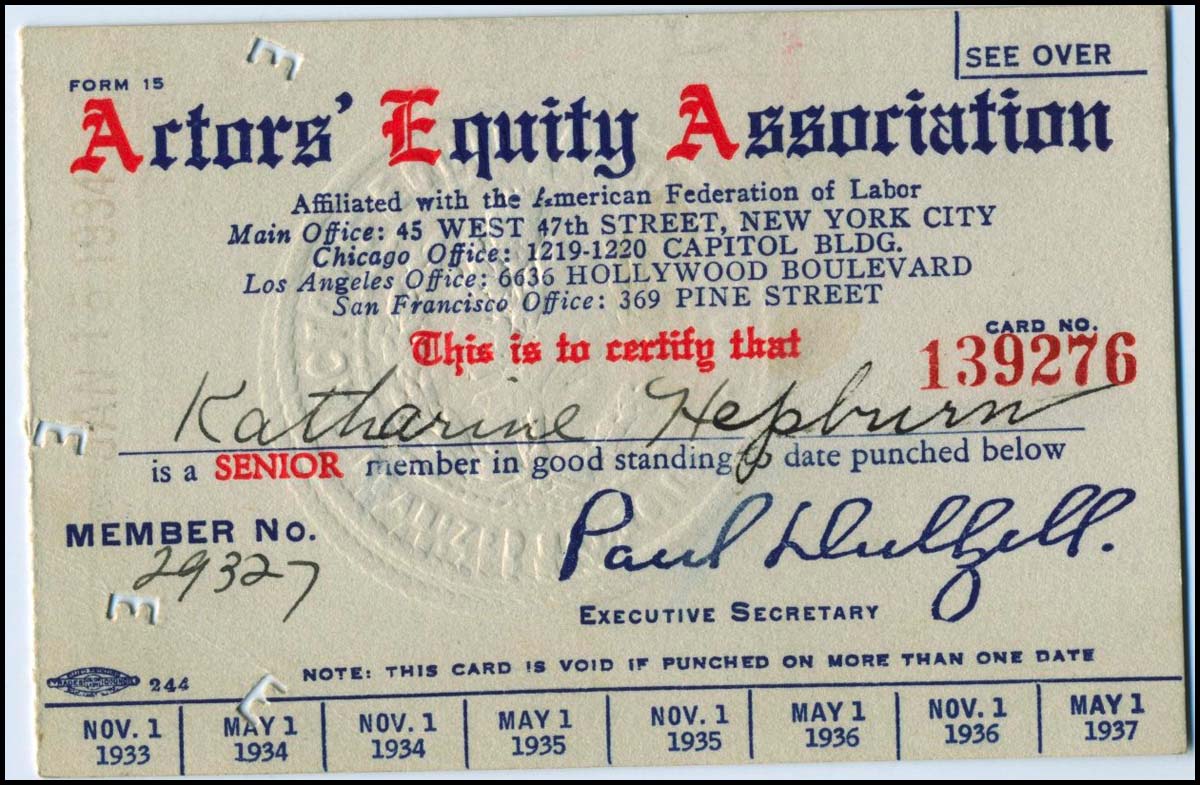 SEE OVER
FORM 15
Actors' Equity Association
Affiliated with the American Federation of Labor
Main Office: 45 WEST 47th STREET, NEW YORK CITY
Chicago Office: 1219-1220 CAPITOL BLDG.
Los Angeles Office: 6636 HOLLYWOOD BOULEVARD
San Francisco Office: 369 PINE STREET
This is to certify that
CARD NO.
139276
Katharine Hepburn
is a SENIOR member in good standing to date punched below
MEMBER NO.
29327
Paul Dullzell.
EXECUTIVE SECRETARY
NOTE: THIS CARD IS VOID IF PUNCHED ON MORE THAN ONE DATE
244
NOV. 1 1933
MAY 1 1934
NOV. 1 1934
MAY 1 1935
NOV. 1 1935
MAY 1 1936
NOV. 1 1936
MAY 1 1937